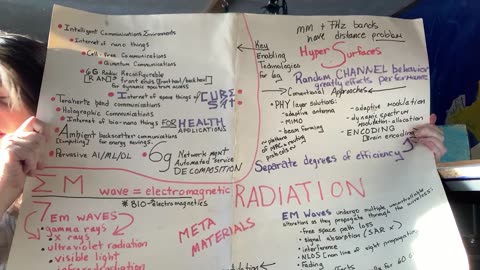 • Intelligent Communications Enviroments
• Internet of nano things
• Cell-Free Communications
• Quantum Communications
6G Radio Reconfigurable
[RAN]s front ends (fronthaul/backhaul)
for dynamic spectrum access
• Internet of space things w/ CUBE
SAT
Terahertz band communications
• Holographic Communications
• Internet of bio-nano things FOR HEALTH
APPLICATIONS
• Ambient backscatter communications
[Computing] for energy savings.
• Pervasive AI/ML/DL
6g Network mgmt
Automated service
DECOMPOSITION
Key
Enabling
Technologies
for 6g
mm + THz bands
have distance problem
HyperSurfaces
Random CHANNEL behavior
greatly effects performance
→ Conventional Approaches
• PHY layer solutions:
- adaptive antenna
- MIMO
- beam forming
- adaptive modulation
- dynamic spectrum
allocation
- ENCODING
[Brain encoding]
Separate degrees of efficiency
EM wave = electromagnetic RADIATION
* BIO-electromagnetics
EM WAVES
• gamma rays
• x rays
• ultraviolet radiation
• visible light
META
MATERIALS
EM WAVES undergo multiple uncontrollable
alterations as they propagate through the wireless:
• free space path loss
• signal absorption (SAR
• interference
• Fading